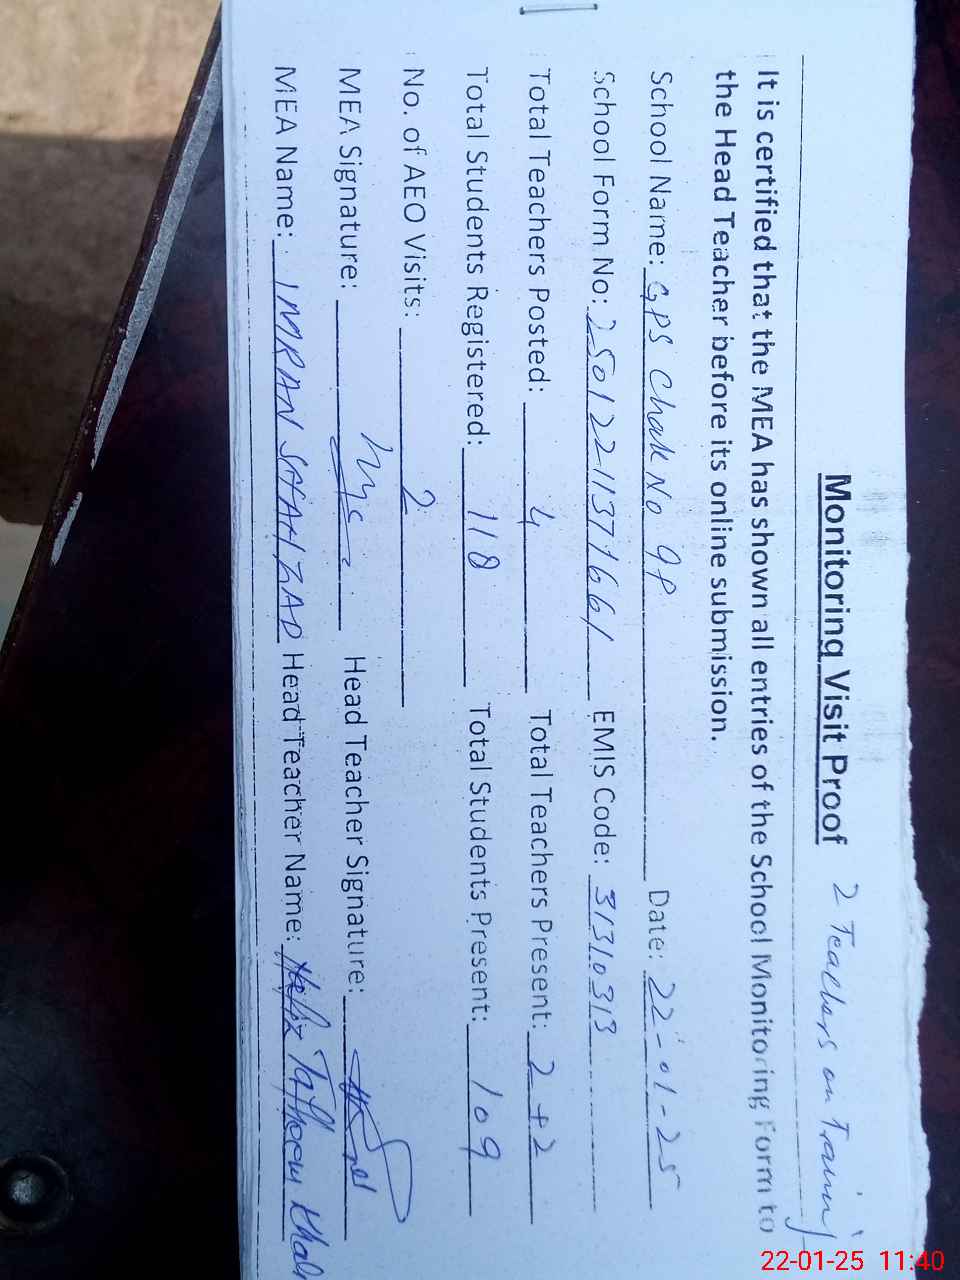 Monitoring Visit Proof
2 Teachers on Training
It is certified that the MEA has shown all entries of the School Monitoring Form to
the Head Teacher before its online submission.
School Name: GPS Chak No 9P Date: 22-01-25
School Form No: 2501221137166 1 EMIS Code: 31310313
Total Teachers Posted: 4 Total Teachers Present: 2+2
Total Students Registered: 118 Total Students Present: 109
No. of AEO Visits: 2
MEA Signature: Head Teacher Signature:
MEA Name: IMRAN SHAHZAD Head Teacher Name: Hafiz
22-01-25 11:40